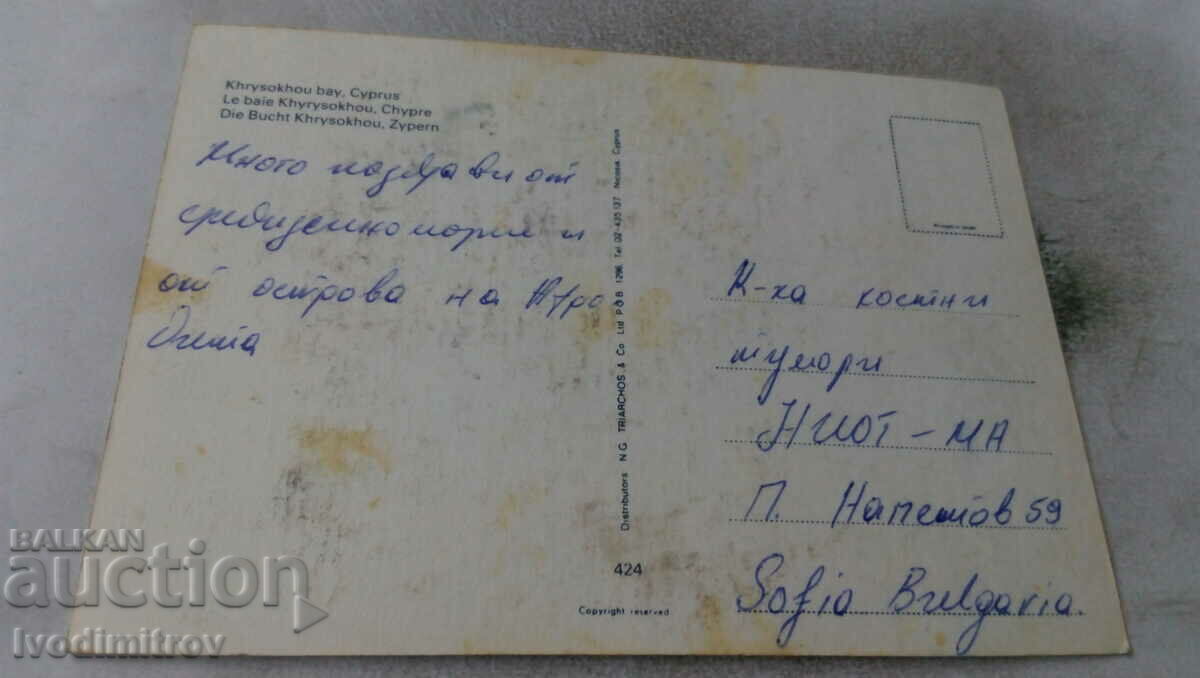 Khrysokhou bay, Cyprus
Le baie Khyrysokhou, Chypre
Die Bucht Khrysokhou, Zypern
Много поздрави от
средиземно море и
от острова на Афро
дита
Distributors N G TRIARCHOS & Co Ltd P O B 1296, Tel 02-435137 Nicosia Cyprus
424
Copyright reserved
К-ка костни
тумори
НИОТ - МА
П. Напетов 59
Sofia Bulgaria.
BALKAN
auction
Ivodimitrov